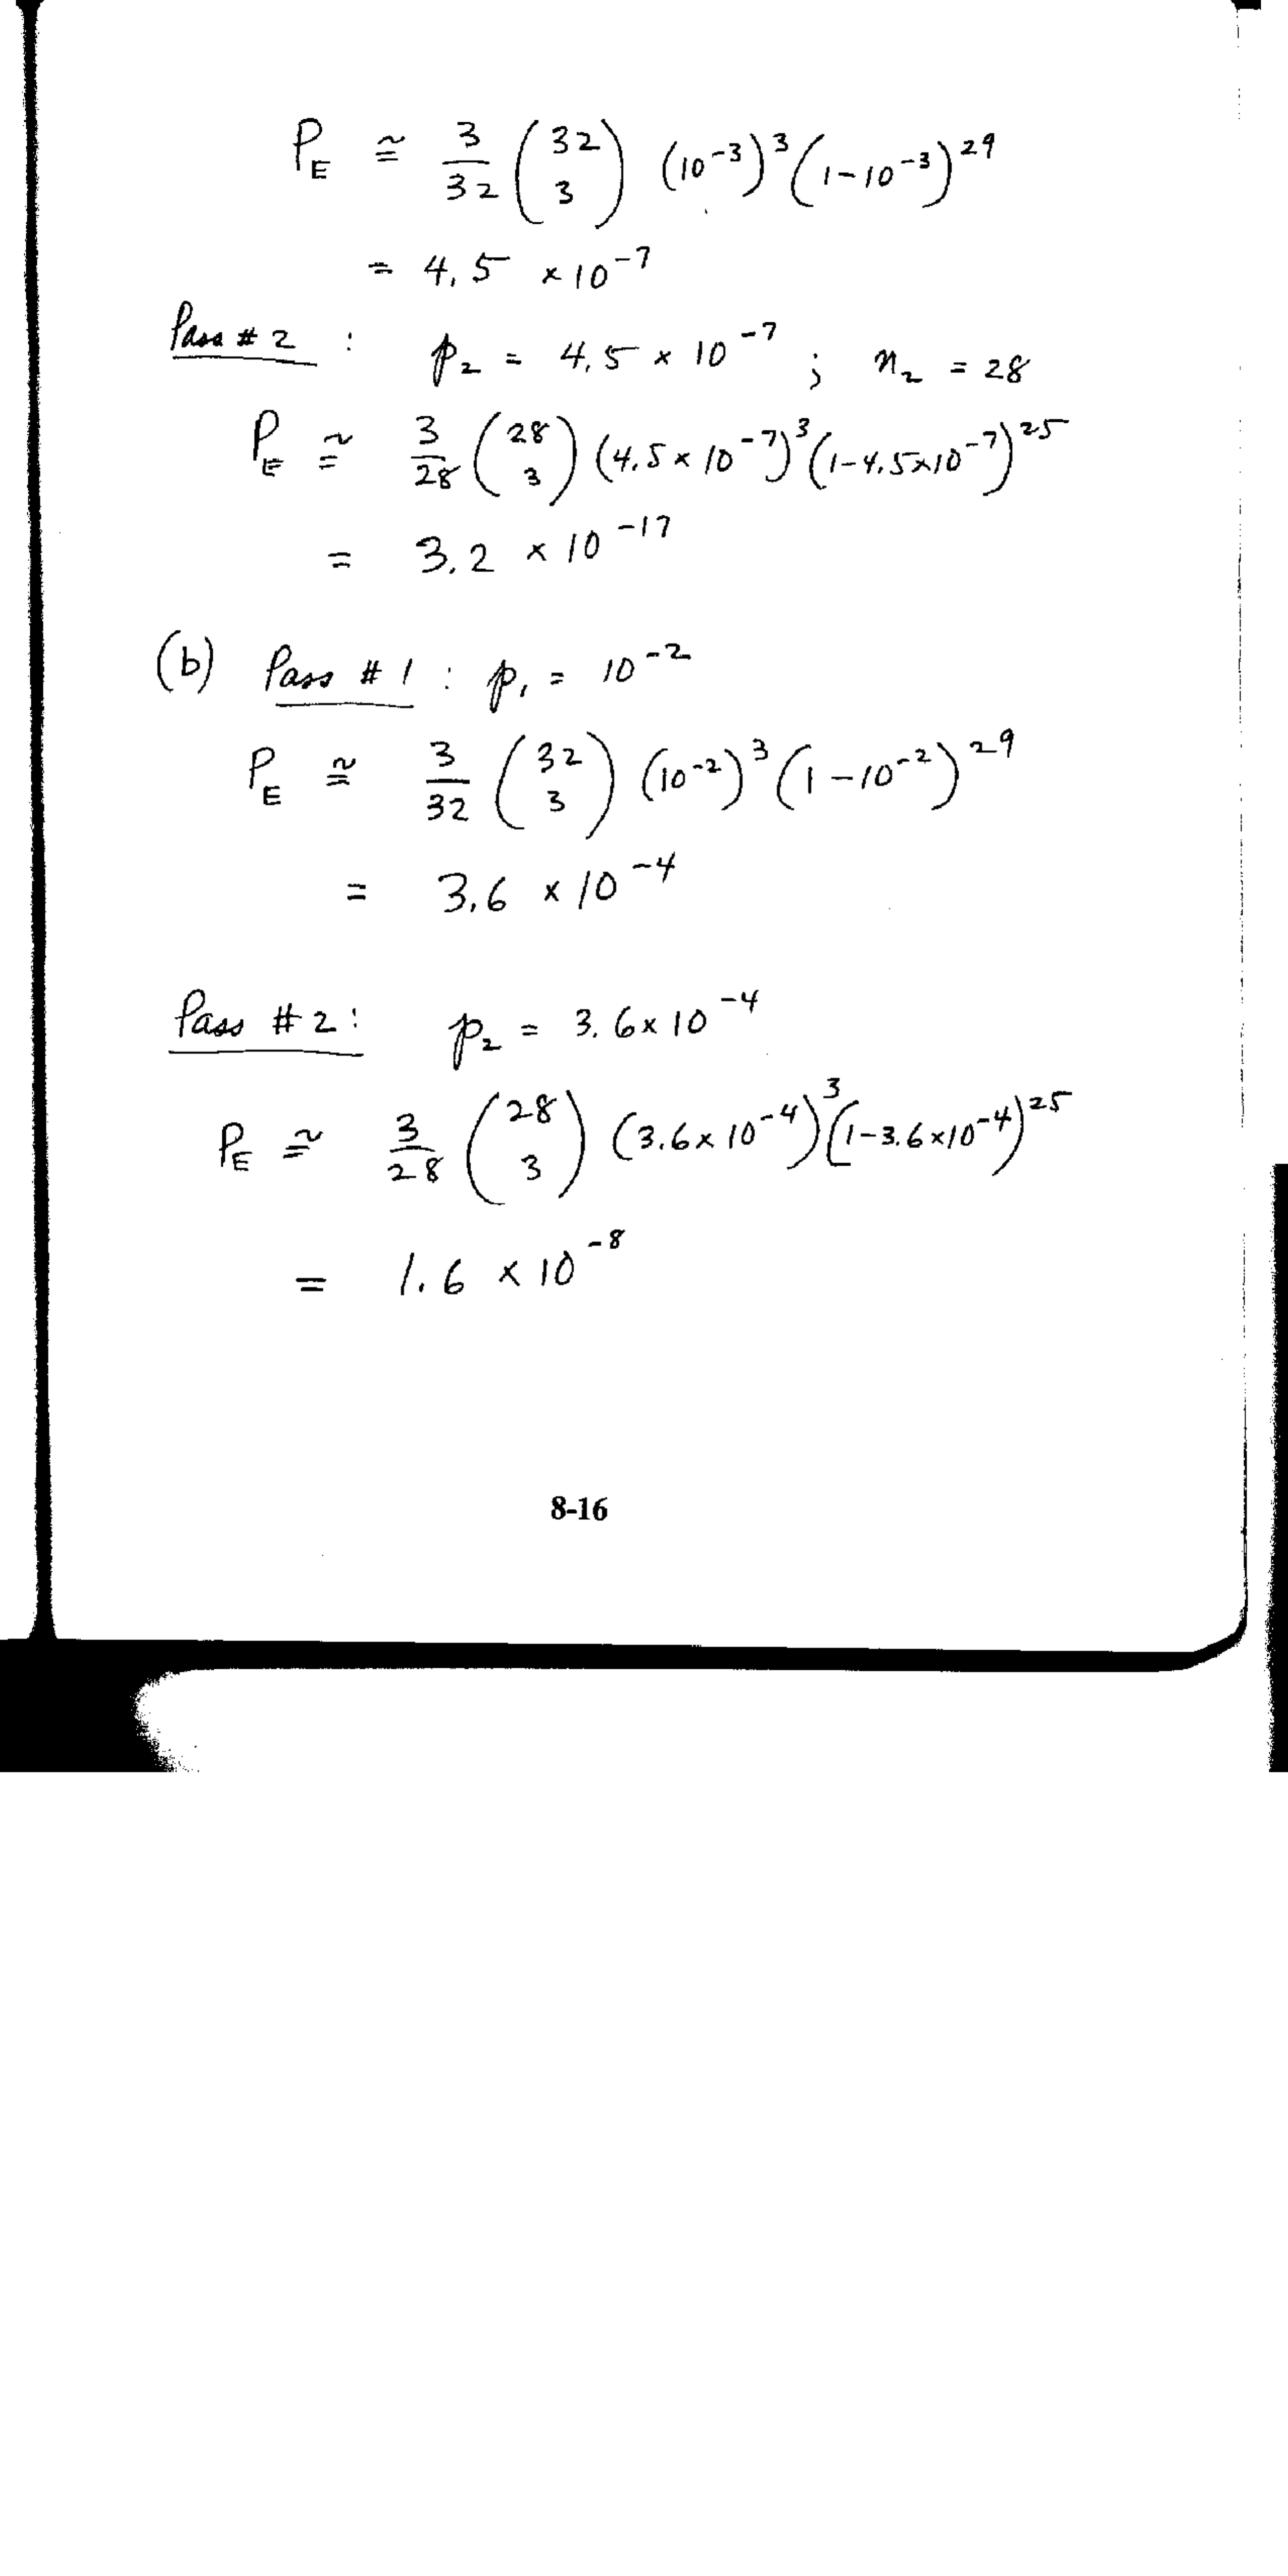 P_E ≅ 3/32 (32 3) (10^-3)^3 (1-10^-3)^29
= 4.5 × 10^-7
Pass # 2 : p_2 = 4.5 × 10^-7 ; n_2 = 28
P_E ≅ 3/28 (28 3) (4.5 × 10^-7)^3 (1-4.5×10^-7)^25
= 3.2 × 10^-17
(b) Pass # 1 : p_1 = 10^-2
P_E ≅ 3/32 (32 3) (10^-2)^3 (1-10^-2)^29
= 3.6 × 10^-4
Pass # 2 : p_2 = 3.6 × 10^-4
P_E ≅ 3/28 (28 3) (3.6 × 10^-4)^3 (1-3.6×10^-4)^25
= 1.6 × 10^-8
8-16